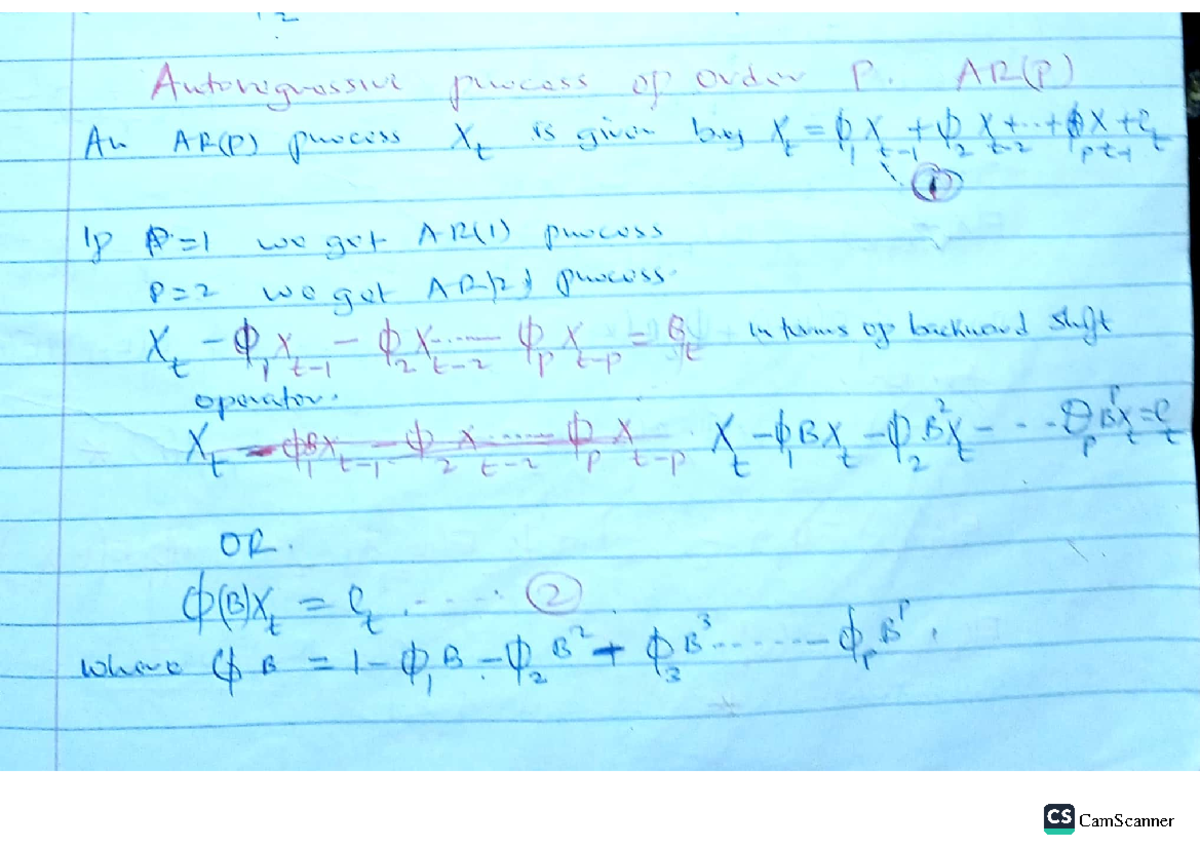 2
Autoregressive process of order P. AR(P)
An AR(P) process Xₜ is given by Xₜ = ϕ₁Xₜ₋₁ + ϕ₂Xₜ₋₂ + ... + ϕₚXₜ₋₁ + eₜ
①
If P=1 we get AR(1) process
P=2 we get AR(2) process.
Xₜ - ϕ₁Xₜ₋₁ - ϕ₂Xₜ₋₂ ...... - ϕₚXₜ₋ₚ = eₜ In terms of backward shift
operator.
Xₜ - ϕ₁BXₜ₋₁ - ϕ₂Xₜ₋₂ ...... - ϕₚXₜ₋ₚ. Xₜ - ϕ₁BXₜ - ϕ₂B²Xₜ - ... - ϕₚBᴾXₜ = eₜ
OR.
ϕ(B)Xₜ = eₜ ...... ②
where ϕB = 1 - ϕ₁B - ϕ₂B² + ϕ₃B³ ...... - ϕₚBᴾ.
CS CamScanner